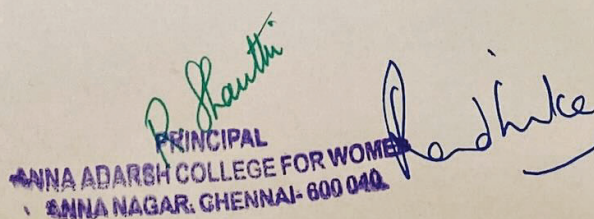 R. Shanthi
Radhika
PRINCIPAL
ANNA ADARSH COLLEGE FOR WOMEN
ANNA NAGAR, CHENNAI- 600 040.